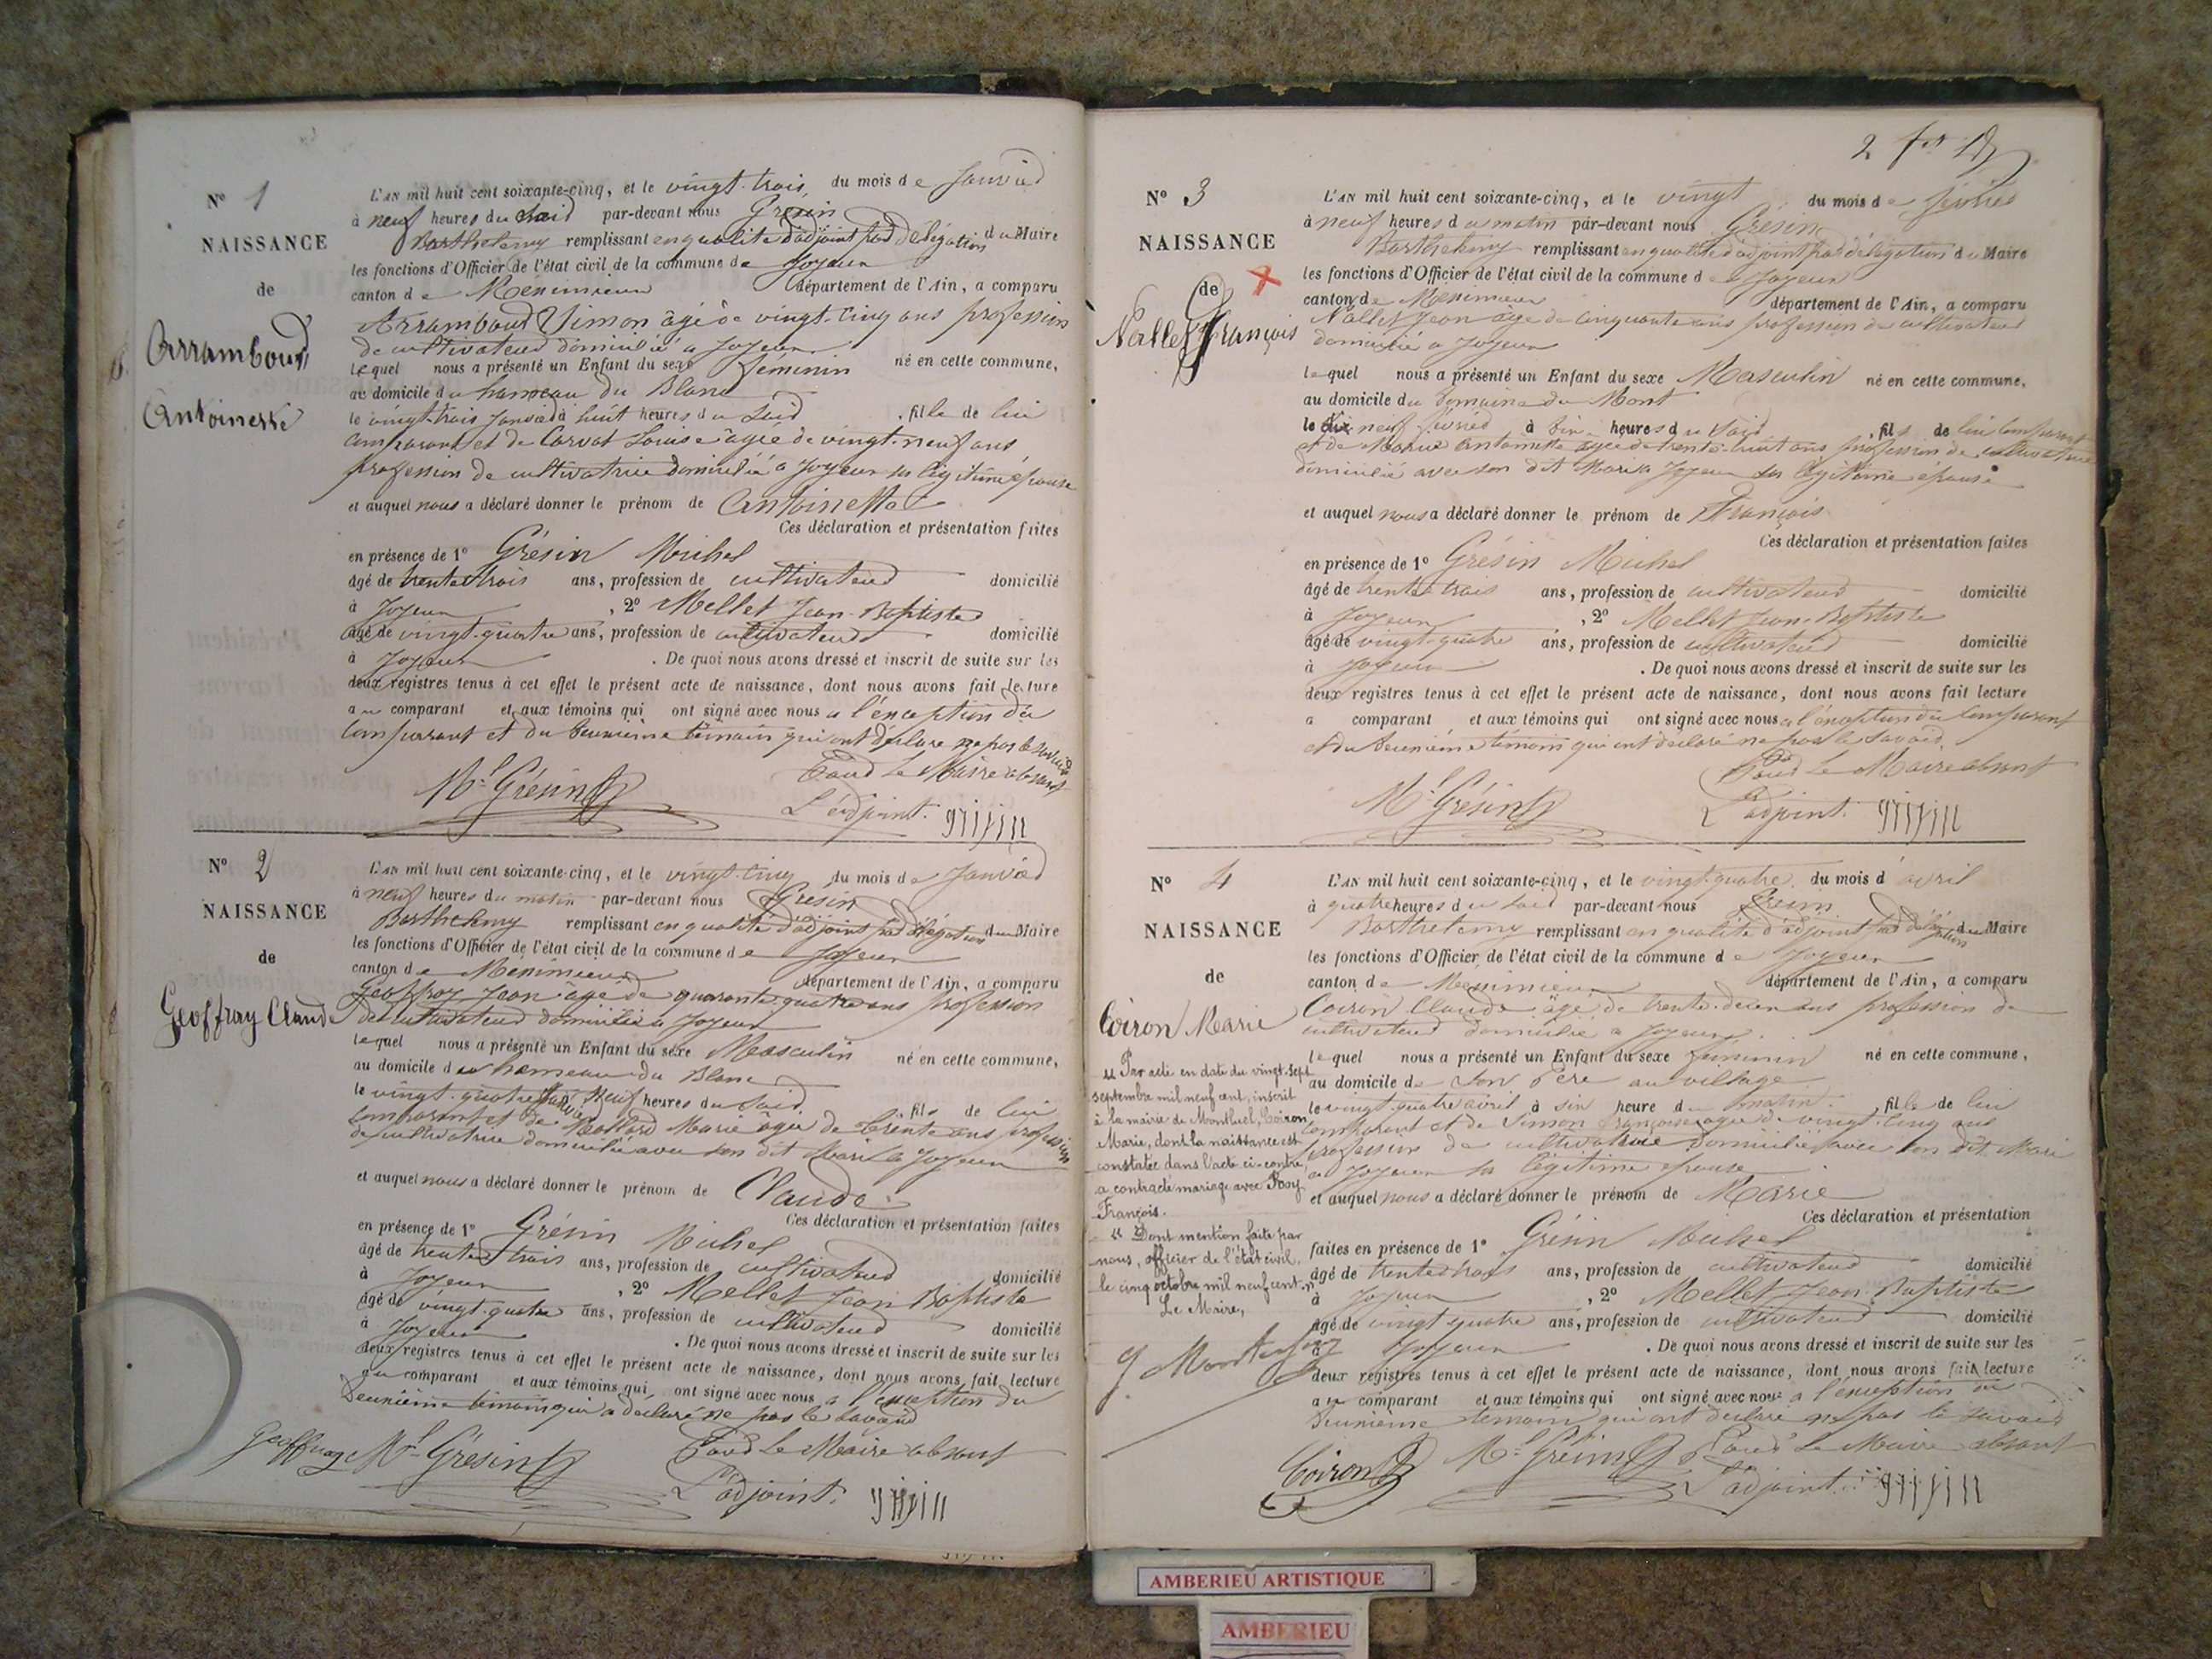 N° 1
NAISSANCE
de
Arramboud
Antoinette
L'AN mil huit cent soixante-cinq, et le vingt-trois du mois de Janvier
à neuf heures du Soir par-devant nous Grésin
Barthelemy remplissant en qualité d'adjoint par délégation du Maire
les fonctions d'Officier de l'état civil de la commune de Joyeux
canton de Meximieux département de l'Ain, a comparu
Arramboud Simon âgé de vingt-cinq ans profession
de cultivateur domicilié à Joyeux
lequel nous a présenté un Enfant du sexe féminin né en cette commune,
au domicile du hameau du Blanc
le vingt-trois Janvier à huit heures du Soir , fille de lui
comparant et de Carvat Louise âgée de vingt-neuf ans
profession de cultivatrice domiciliée à Joyeux sa légitime épouse
et auquel nous a déclaré donner le prénom de Antoinette
Ces déclaration et présentation faites
en présence de 1° Grésin Michel
âgé de trente trois ans, profession de cultivateur domicilié
à Joyeux , 2° Mellet Jean-Baptiste
âgé de vingt-quatre ans, profession de cultivateur domicilié
à Joyeux . De quoi nous avons dressé et inscrit de suite sur les
deux registres tenus à cet effet le présent acte de naissance, dont nous avons fait lecture
au comparant et aux témoins qui ont signé avec nous a l'exception du
Comparant et du deuxième témoin qui ont déclaré ne pas le savoir
Pour Le Maire absent
Ml Grésin L'adjoint. grésin
N° 2
NAISSANCE
de
Geoffray Claude
L'AN mil huit cent soixante-cinq, et le vingt-cinq du mois de Janvier
à neuf heures du matin par-devant nous Grésin
Barthelemy remplissant en qualité d'adjoint par délégation du Maire
les fonctions d'Officier de l'état civil de la commune de Joyeux
canton de Méximieux département de l'Ain, a comparu
Geoffroy Jean âgé de quarante-quatre ans profession
de cultivateur domicilié à Joyeux
lequel nous a présenté un Enfant du sexe Masculin né en cette commune,
au domicile du hameau du Blanc
le vingt-quatre Janvier neuf heures du Soir , fils de lui
comparant et de Mollard Marie âgée de trente ans profession
de cultivatrice domiciliée avec son dit Mari à Joyeux
et auquel nous a déclaré donner le prénom de Claude
Ces déclaration et présentation faites
en présence de 1° Grésin Michel
âgé de trente trois ans, profession de cultivateur domicilié
à Joyeux , 2° Mellet Jean Baptiste
âgé de vingt-quatre ans, profession de cultivateur domicilié
à Joyeux . De quoi nous avons dressé et inscrit de suite sur les
deux registres tenus à cet effet le présent acte de naissance, dont nous avons fait lecture
au comparant et aux témoins qui ont signé avec nous a l'exception du
deuxième témoin qui a déclaré ne pas le savoir
Geoffray Ml Grésin Pour Le Maire absent
L'adjoint. grésin
2
N° 3
NAISSANCE
de
Nallet François
L'AN mil huit cent soixante-cinq, et le vingt du mois de février
à neuf heures du matin par-devant nous Grésin
Barthelemy remplissant en qualité d'adjoint par délégation du Maire
les fonctions d'Officier de l'état civil de la commune de Joyeux
canton de Meximieux département de l'Ain, a comparu
Nallet Jean âgé de cinquante ans profession de cultivateur
domicilié à Joyeux
lequel nous a présenté un Enfant du sexe Masculin né en cette commune,
au domicile du Domaine du Mont
le dix neuf février à six heures du Soir , fils de lui comparant
et de Marie Antoinette âgée de trente-huit ans profession de cultivatrice
domiciliée avec son dit Mari à Joyeux sa légitime épouse
et auquel nous a déclaré donner le prénom de François
Ces déclaration et présentation faites
en présence de 1° Grésin Michel
âgé de trente trois ans, profession de cultivateur domicilié
à Joyeux , 2° Mellet Jean-Baptiste
âgé de vingt-quatre ans, profession de cultivateur domicilié
à Joyeux . De quoi nous avons dressé et inscrit de suite sur les
deux registres tenus à cet effet le présent acte de naissance, dont nous avons fait lecture
a comparant et aux témoins qui ont signé avec nous a l'exception du Comparant
et du deuxième témoin qui ont déclaré ne pas le savoir.
Pour Le Maire absent
Ml Grésin L'adjoint. grésin
N° 4
NAISSANCE
de
Coiron Marie
« Par acte en date du vingt-sept
septembre mil neuf cent, inscrit
à la mairie de Montluel, Coiron
Marie, dont la naissance est
constatée dans l'acte ci-contre,
a contracté mariage avec
François.
« Dont mention faite par
nous, officier de l'état civil,
le cinq octobre mil neuf cent. »
Le Maire,
L'AN mil huit cent soixante-cinq, et le vingt-quatre du mois d'avril
à quatre heures du soir par-devant nous Grésin
Barthelemy remplissant en qualité d'adjoint par délégation du Maire
les fonctions d'Officier de l'état civil de la commune de Joyeux
canton de Méximieux département de l'Ain, a comparu
Coiron Claude âgé de trente-deux ans profession de
cultivateur domicilié à Joyeux
lequel nous a présenté un Enfant du sexe féminin né en cette commune,
au domicile de Son Père au village
le vingt-quatre avril à six heure du matin , fille de lui
Comparant et de Simon Françoise âgée de vingt-cinq ans
profession de cultivatrice domiciliée avec son dit Mari
à Joyeux sa légitime épouse
et auquel nous a déclaré donner le prénom de Marie
Ces déclaration et présentation
faites en présence de 1° Grésin Michel
âgé de trente trois ans, profession de cultivateur domicilié
à Joyeux , 2° Mellet Jean-Baptiste
âgé de vingt quatre ans, profession de cultivateur domicilié
à Joyeux . De quoi nous avons dressé et inscrit de suite sur les
deux registres tenus à cet effet le présent acte de naissance, dont nous avons fait lecture
au comparant et aux témoins qui ont signé avec nous a l'exception du
deuxième témoin qui ont déclaré ne pas le savoir
Coiron Ml Grésin Pour Le Maire absent
L'adjoint. grésin
AMBERIEU ARTISTIQUE
AMBERIEU